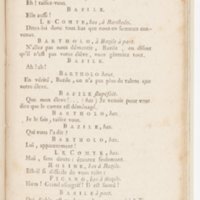 Eh! taisez-vous.
BASILE.
Elle aussi!
LE COMTE, bas, à Bartholo.
Dites-lui donc tous bas que nous en sommes convenus.
BARTHOLO, à Bazile à part.
N'allez pas nous démentir, Bazile, en disant
qu'il n'est pas votre élève; vous gâteriez tout.
BASILE.
Ah! ah!
BARTHOLO haut.
En vérité, Bazile, on n'a pas plus de talent que
votre élève.
BASILE stupéfait.
Que mon élève! .. (bas) Je venais pour vous
dire que le comte est déménagé.
BARTHOLO, bas.
Je le sais, taisez-vous.
BAZILE, bas.
Qui vous l'a dit?
BARTHOLO, bas.
Lui, apparemment!
LE COMTE, bas.
Moi, sans doute: écoutez seulement.
ROSINE, bas à Bazile.
Est-il si difficile de vous taire?
FIGARO, bas à Bazile.
Hem! Grand escogrif! Il est sourd!
BASILE à part.